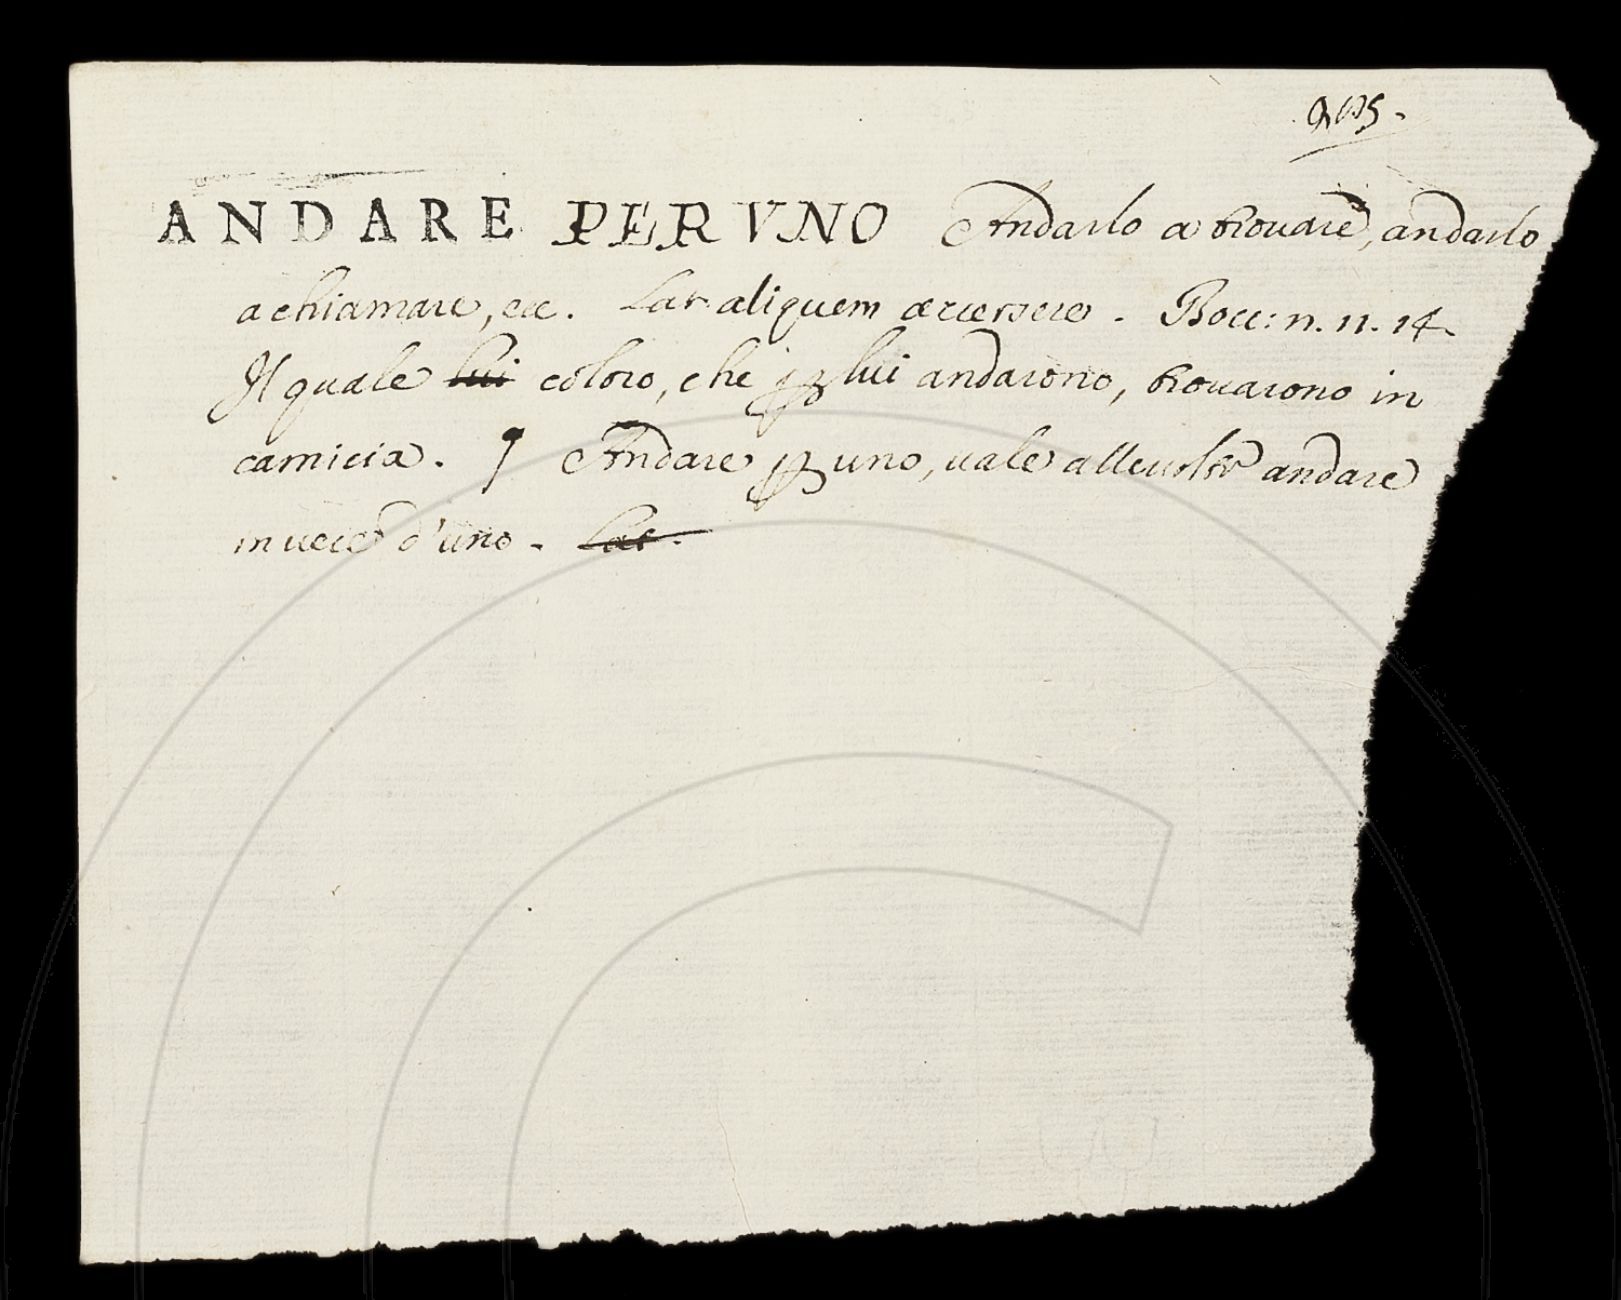 ANDARE PER VNO Andarlo a trouare, andarlo
a chiamare, ecc. Lat. aliquem arcersere. Bocc: n. 11. 14.
Il quale lui coloro, che ꝑ lui andarono, trouarono in
camicia. ¶ Andare ꝑ uno, uale alleuolte andare
in uece d'uno. Lat.